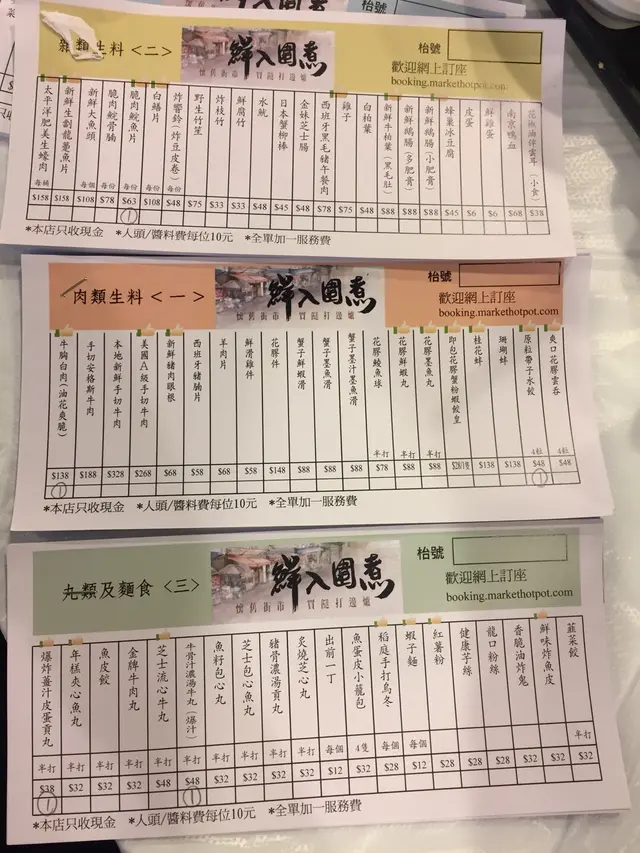 雜類生料<二>
鮮入圍煮
懷舊街市 買餸打邊爐
枱號
歡迎網上訂座
booking.markethotpot.com
太平洋肥美生蠔肉 每桶 $158
新鮮生劏龍躉魚片 $158
新鮮大魚頭 每個 $108
脆肉鯇骨腩 每份 $78
脆肉鯇魚片 每份 $63 1
白鱔片 每份 $108
炸響鈴(炸豆皮卷) 每份 $48
野生竹笙 $75
炸枝竹 $33
鮮腐竹 $33
水魷 $48
日本蟹柳棒 $45
金妹芝士腸 $48
西班牙黑毛豬午餐肉 $78
雞子 $75
白柏葉 $48
新鮮牛柏葉(黑毛肚) $88
新鮮鵝腸(多肥膏) $88
新鮮鵝腸(小肥膏) $88
蜂巢冰豆腐 $45
皮蛋 $6
鮮雞蛋 $6
南京鴨血 $68
花椒油伴雲耳(小食) $38
*本店只收現金 *人頭/醬料費每位10元 *全單加一服務費
肉類生料<一>
鮮入圍煮
懷舊街市 買餸打邊爐
枱號
歡迎網上訂座
booking.markethotpot.com
牛胸白肉(油花爽脆) $138 1
手切安格斯牛肉 $188
本地新鮮手切牛肉 $328
美國A級手切牛肉 $268
新鮮豬肉眼根 $68
西班牙豬腩片 $58
羊肉片 $68
鮮滑雞件 $58
花膠件 $148
蟹子鮮蝦滑 $88
蟹子墨魚滑 $88
蟹子墨汁墨魚滑 $88
花膠鯪魚球 半打 $78
花膠鮮蝦丸 半打 $88
花膠墨魚丸 半打 $88
即包花膠蟹粉蝦餃皇 $28/1隻
桂花蚌 $138
珊瑚蚌 $138
原粒帶子水餃 4粒 $48 1
爽口花膠雲吞 4粒 $48
*本店只收現金 *人頭/醬料費每位10元 *全單加一服務費
丸類及麵食<三>
鮮入圍煮
懷舊街市 買餸打邊爐
枱號
歡迎網上訂座
booking.markethotpot.com
爆炸薑汁皮蛋貢丸 半打 $38 1
年糕夾心魚丸 半打 $32
魚皮餃 半打 $32
金牌牛肉丸 半打 $32
芝士流心牛丸 半打 $48
牛骨汁濃湯牛丸(爆汁) 半打 $48 1
魚籽包心丸 半打 $32
芝士包心魚丸 半打 $32
豬骨濃湯貢丸 半打 $32
炙燒芝心丸 半打 $32
出前一丁 每個 $12
魚蛋皮小籠包 4隻 $32
稻庭手打烏冬 每個 $28
蝦子麵 每個 $12
紅薯粉 $28
健康芋絲 $28
龍口粉絲 $28
香脆油炸鬼 $32
鮮味炸魚皮 $32
韮菜餃 半打 $32
*本店只收現金 *人頭/醬料費每位10元 *全單加一服務費